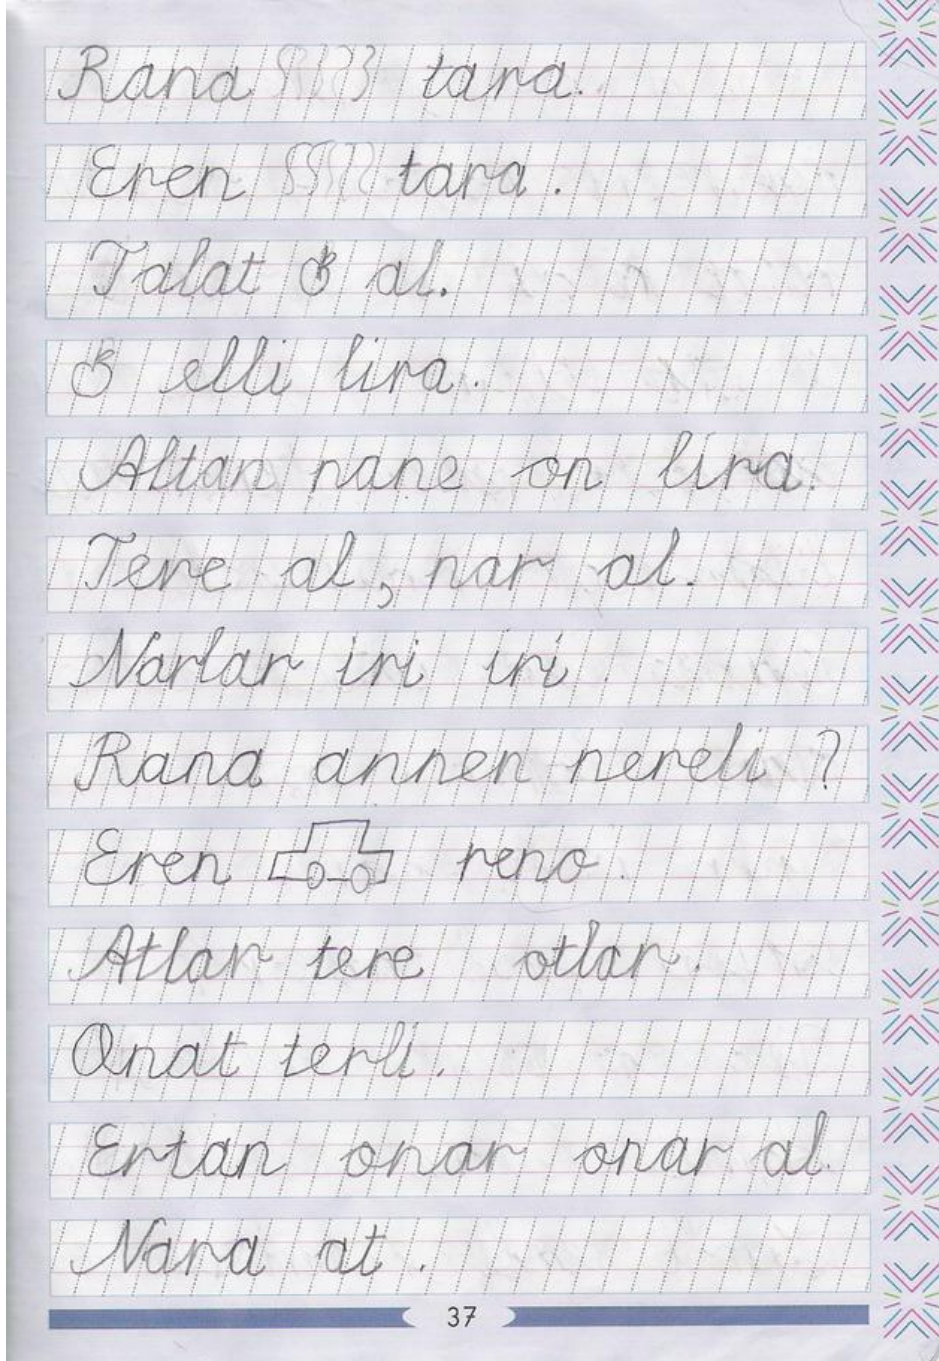 Rana tara.
Eren tara.
Talat al.
elli lira.
Altan nane on lira.
Tere al, nar al.
Narlar iri iri
Rana annen nereli ?
Eren reno.
Atlar tere otlar.
Onat terli.
Ertan onar onar al.
Nara at.
37